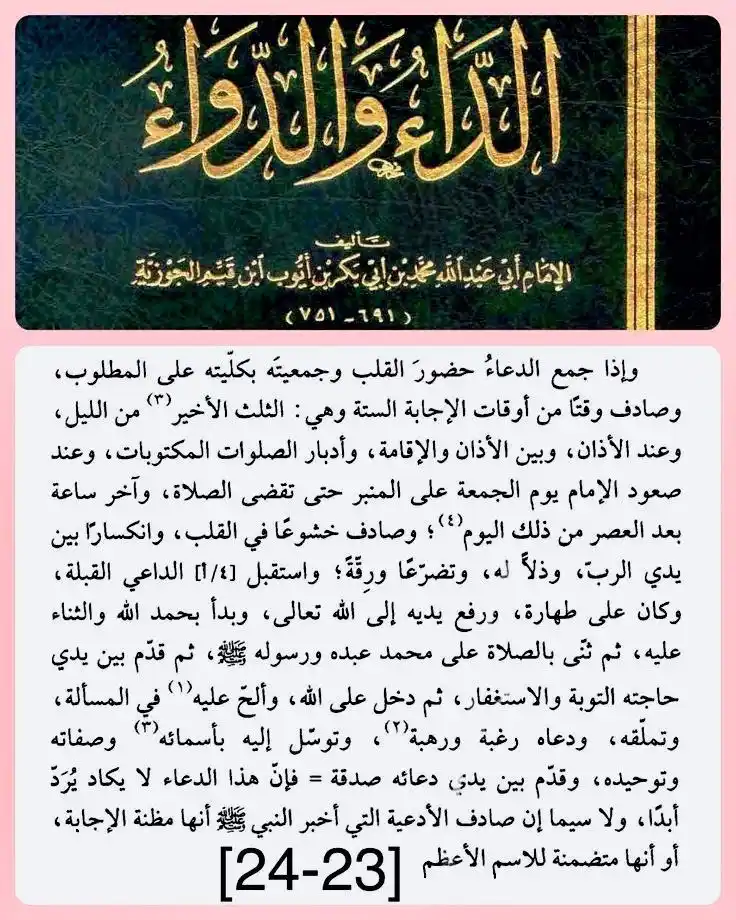 الدَّاءُ وَالدَّوَاءُ
تَأليف
الإمَام أَبي عَبْدِ اللَّه مُحَمَّد بْن أَبي بَكر بْن أَيُّوب ابْن قَيِّم الجَوْزِيَّة
(٦٩١ - ٧٥١)
وإذا جمع الدعاءُ حضورَ القلب وجمعيتَه بكلّيته على المطلوب،
وصادف وقتًا من أوقات الإجابة الستة وهي: الثلث الأخير(٣) من الليل،
وعند الأذان، وبين الأذان والإقامة، وأدبار الصلوات المكتوبات، وعند
صعود الإمام يوم الجمعة على المنبر حتى تقضى الصلاة، وآخر ساعة
بعد العصر من ذلك اليوم(٤)؛ وصادف خشوعًا في القلب، وانكسارًا بين
يدي الربّ، وذلاًّ له، وتضرّعًا ورِقّةً؛ واستقبل [٤/أ] الداعي القبلة،
وكان على طهارة، ورفع يديه إلى الله تعالى، وبدأ بحمد الله والثناء
عليه، ثم ثنّى بالصلاة على محمد عبده ورسوله ﷺ، ثم قدّم بين يدي
حاجته التوبة والاستغفار، ثم دخل على الله، وألحّ عليه(١) في المسألة،
وتملّقه، ودعاه رغبة ورهبة(٢)، وتوسّل إليه بأسمائه(٣) وصفاته
وتوحيده، وقدّم بين يدي دعائه صدقة = فإنّ هذا الدعاء لا يكاد يُرَدّ
أبدًا، ولا سيما إن صادف الأدعية التي أخبر النبي ﷺ أنها مظنة الإجابة،
أو أنها متضمنة للاسم الأعظم [24-23]